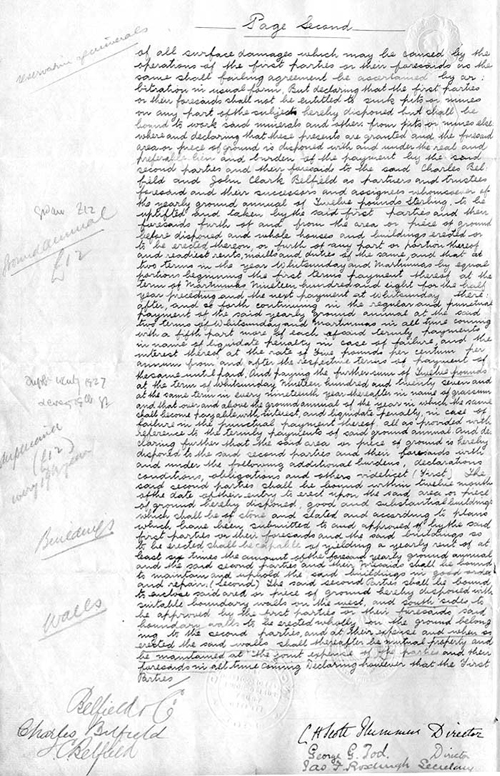 Page Second
reservation of minerals
of all surface damages which may be caused by the
operations of the first parties or their foresaids as the
same shall failing agreement be ascertained by ar:
bitration in usual form, But declaring that the first parties
or their foresaids shall not be entitled to sink pits or mines
on any part of the subjects hereby disponed but shall be
bound to work said minerals and others from pits or mines else
where and declaring that these presents are granted and the foresaid
area or piece of ground is disponed with and under the real and
preferable lien and burden of the payment by the said
second parties and their foresaids to the said Charles Bel
field and John Clark Belfield as partners and trustees
foresaid and their successors and assignees whomsoever of
the yearly ground annual of Twelve pounds sterling, to be
uplifted and taken by the said first parties and their
foresaids furth of and from the area or piece of ground
before disponed and whole houses and buildings erected or
to be erected thereon, or furth of any part or portion thereof
and readiest rents, maills and duties of the same, and that at
two terms in the year, Whitsunday and Martinmas by equal
portions beginning the first terms payment thereof at the
term of Martinmas Nineteen hundred and eight for the half
year preceding and the next payment at Whitsunday there:
after, and so forth continuing in the regular and punctual
payment of the said yearly ground annual at the said
two terms of Whitsunday and Martinmas in all time coming
with a fifth part more of each of said termly payments
in name of liquidate penalty in case of failure, and the
interest thereof at the rate of Five pounds per centum per
annum from and after the respective terms of payment of
the same until paid, And paying the further sum of Twelve pounds
at the term of Whitsunday Nineteen hundred and twenty seven and
at the same term in every nineteenth year thereafter in name of grassum
and that over and above the ground annual of the year in which the same
shall become payable with interest, and liquidate penalty, in case of
failure in the punctual payment thereof, all as provided with
reference to the termly payments of said ground annual And de
claring further that the said area or piece of ground is hereby
disponed to the said second parties and their foresaids with
and under the following additional burdens, declarations
conditions, obligations and others videlicet (First) The
said second parties shall be bound within twelve months
of the date of their entry to erect upon the said area or piece
of ground hereby disponed good and substantial buildings
which shall be of stone and slated and according to plans
which have been submitted to and approved of by the said
first parties or their foresaids and the said buildings so
to be erected shall be capable of yielding a yearly rent of at
least six times the amount of the foresaid yearly ground annual
and the said second parties and their foresaids shall be bound
to maintain and uphold the said buildings in good order
and repair; (Second) The said second Parties shall be bound
to enclose said area or piece of ground hereby disponed with
suitable boundary walls on the west and south sides to
be approved by the first parties or their foresaids said
boundary walls to be erected wholly on the ground belong
ing to the second parties, and at their expense and when so
erected the said walls shall thereafter be mutual property and
be maintained at the joint expense of the parties and their
foresaids in all time coming Declaring however that the First
Parties
Ground annual
£12
(£12)
Buildings
Walls
Belfield & Co
Charles Belfield
J. C. Belfield
Director
George G. Tod. Director
Jas. F. Roxburgh Secretary